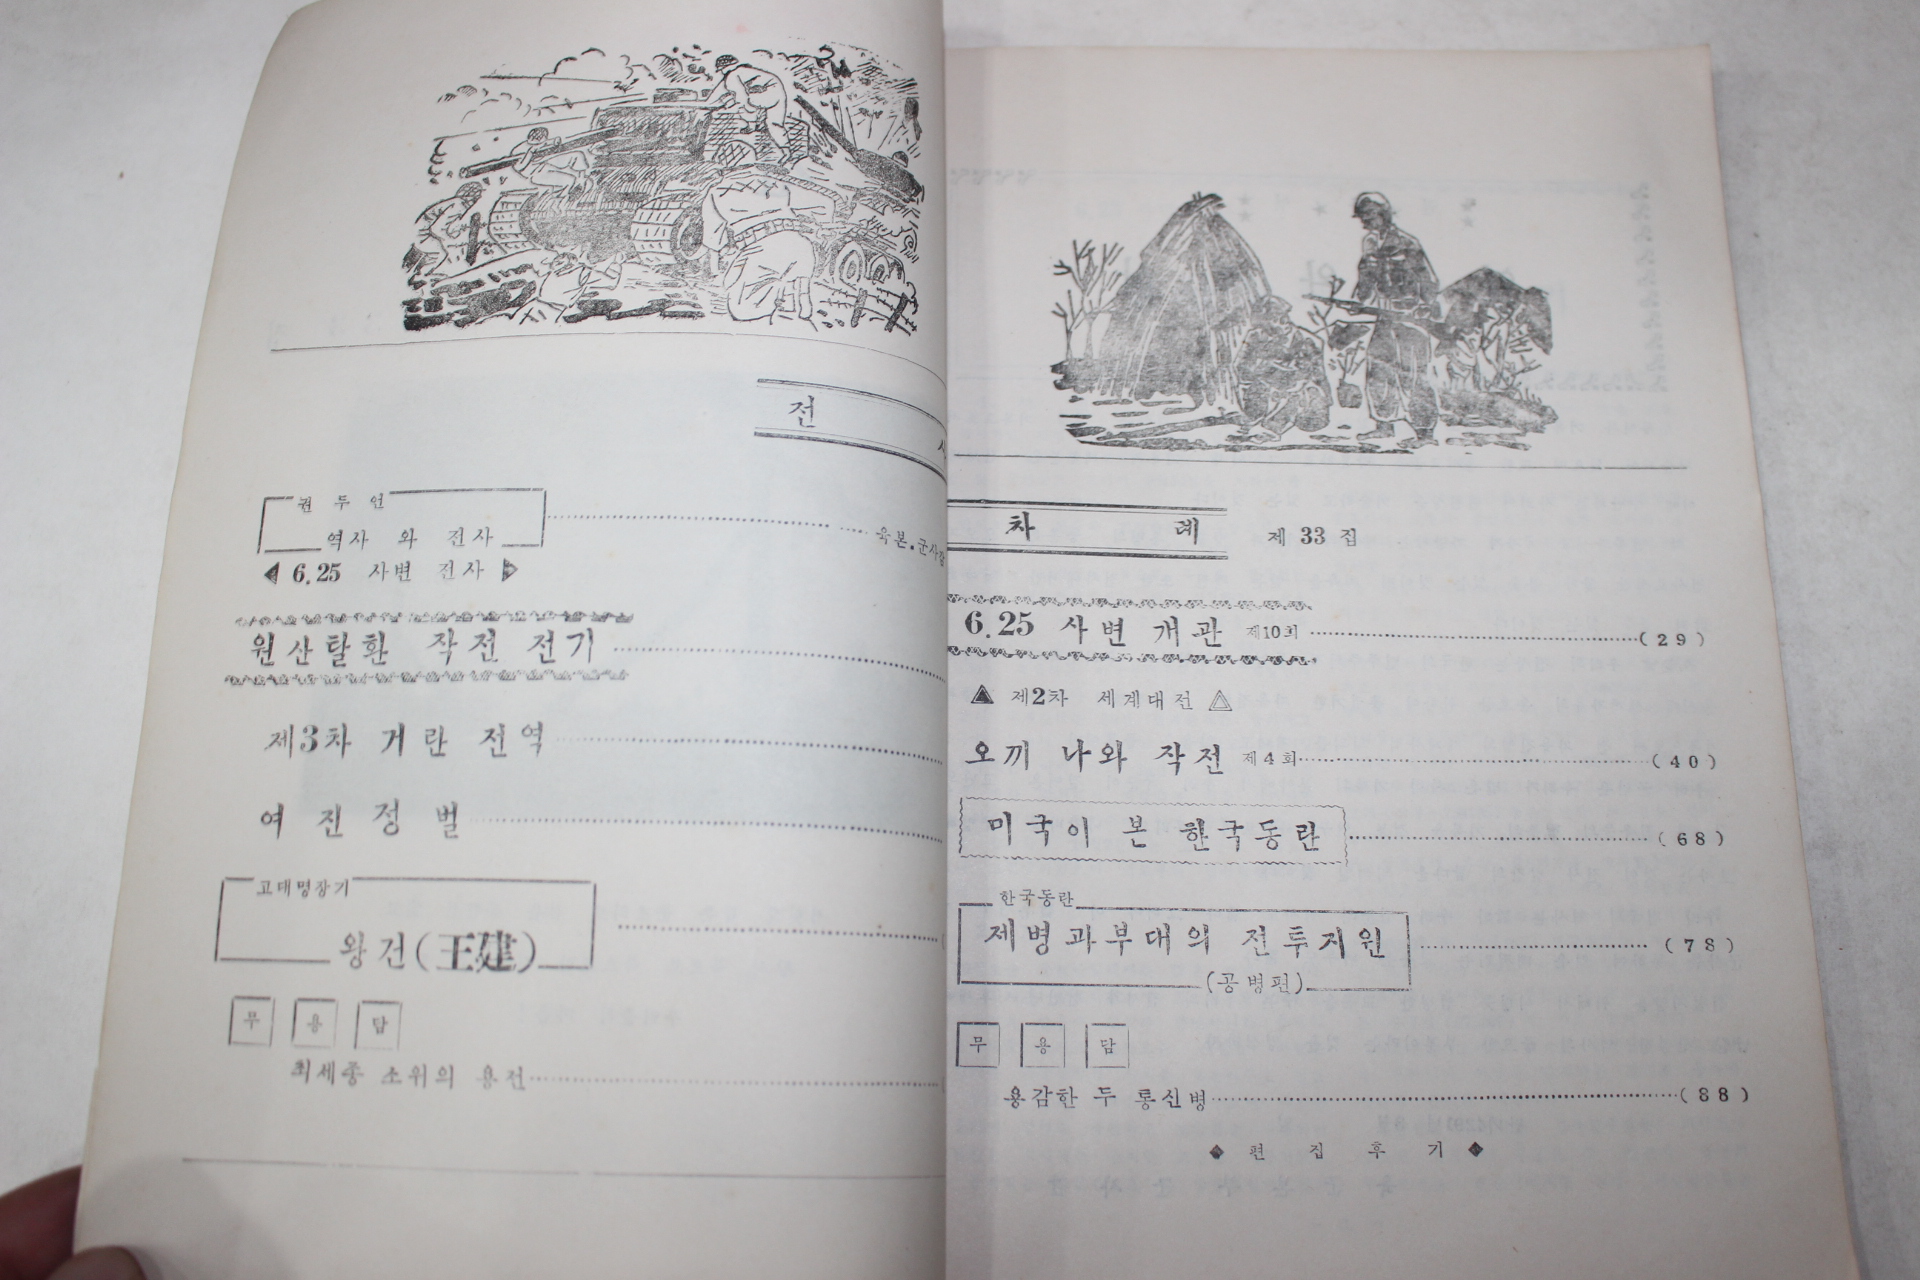 전
권두언
역사 와 전사
육본.군사감
◀ 6.25 사변 전사 ▶
원산탈환 작전 전기
제3차 거란 전역
여진정벌
고대명장기
왕건(王建)
무용담
최세종 소위의 용전
차 례 제 33 집
6.25 사변 개관 제10회 (29)
▲ 제2차 세계대전 △
오끼나와 작전 제4회 (40)
미국이 본 한국동란 (68)
한국동란
제병과부대의 전투지원 (78)
(공병편)
무용담
용감한 두 통신병 (88)
◆ 편집후기 ◆